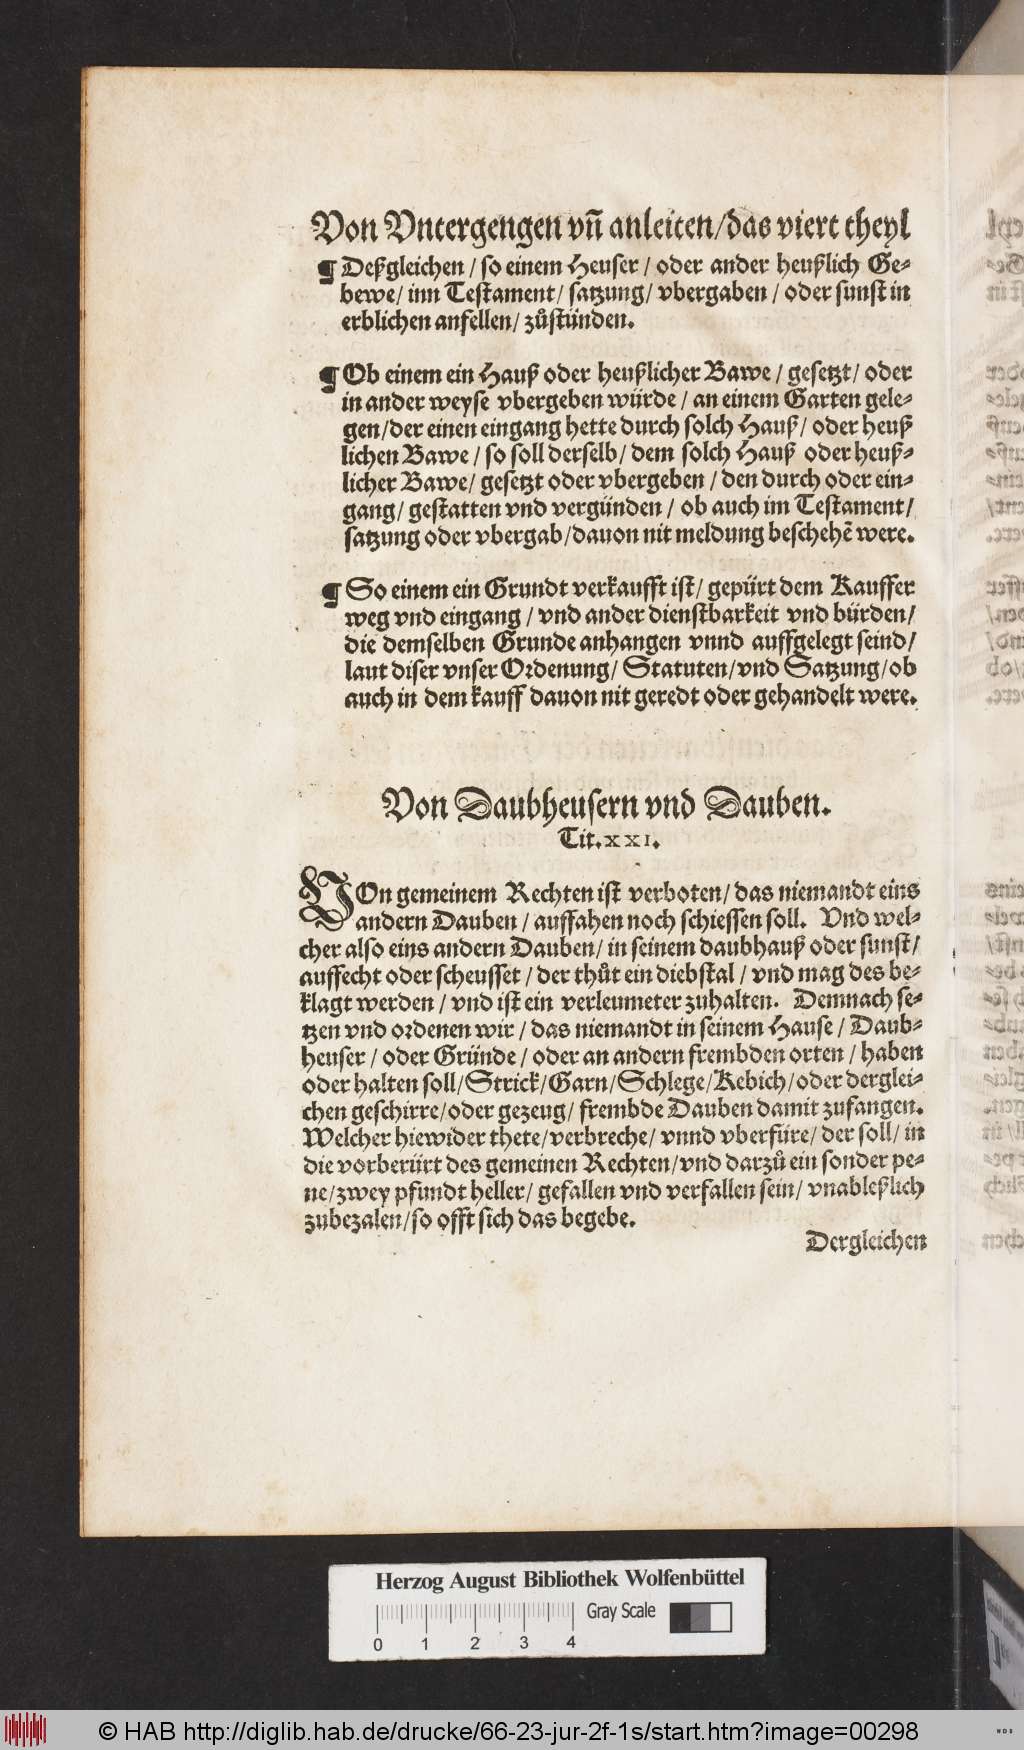 Von Vntergengen vñ anleiten/das viert theyl
¶ Deßgleichen / so einem Heuser / oder ander heußlich Ge-
bewe/ inn Testament/ satzung/ vbergaben / oder sunst in
erblichen anfellen/ zůstünden.
¶ Ob einem ein Hauß oder heußlicher Bawe / gesetzt/ oder
in ander weyse vbergeben würde / an einem Garten gele-
gen/der einen eingang hette durch solch Hauß/ oder heuß
lichen Bawe / so soll derselb/ dem solch Hauß oder heuß-
licher Bawe/ gesetzt oder vbergeben / den durch oder ein-
gang/ gestatten vnd vergünden / ob auch im Testament/
satzung oder vbergab/dauon nit meldung beschehẽ were.
¶ So einem ein Grundt verkaufft ist/ gepürt dem Kauffer
weg vnd eingang / vnd ander dienstbarkeit vnd bürden/
die demselben Grunde anhangen vnnd auffgelegt seind/
laut diser vnser Ordenung/ Statuten/vnd Satzung/ob
auch in dem kauff dauon nit geredt oder gehandelt were.
Von Daubheusern vnd Dauben.
Tit. XXI.
VOn gemeinem Rechten ist verboten/ das niemandt eins
andern Dauben / auffahen noch schiessen soll. Vnd wel-
cher also eins andern Dauben/ in seinem daubhauß oder sunst/
auffecht oder scheusset / der thůt ein diebstal / vnd mag des be-
klagt werden / vnd ist ein verleumeter zuhalten. Demnach se-
tzen vnd ordenen wir / das niemandt in seinem Hause / Daub-
heuser / oder Gründe / oder an andern frembden orten / haben
oder halten soll/Strick/Garn/Schlege/Kebich/oder derglei-
chen geschirre/oder gezeug/ frembde Dauben damit zufangen.
Welcher hiewider thete/verbreche/ vnnd vberfüre/ der soll/ in
die vorberürt des gemeinen Rechten/vnd darzů ein sonder pe-
ne/zwey pfundt heller/ gefallen vnd verfallen sein/ vnableßlich
zubezalen/so offt sich das begebe.
Dergleichen
Herzog August Bibliothek Wolfenbüttel
Gray Scale
0 1 2 3 4
© HAB http://diglib.hab.de/drucke/66-23-jur-2f-1s/start.htm?image=00298